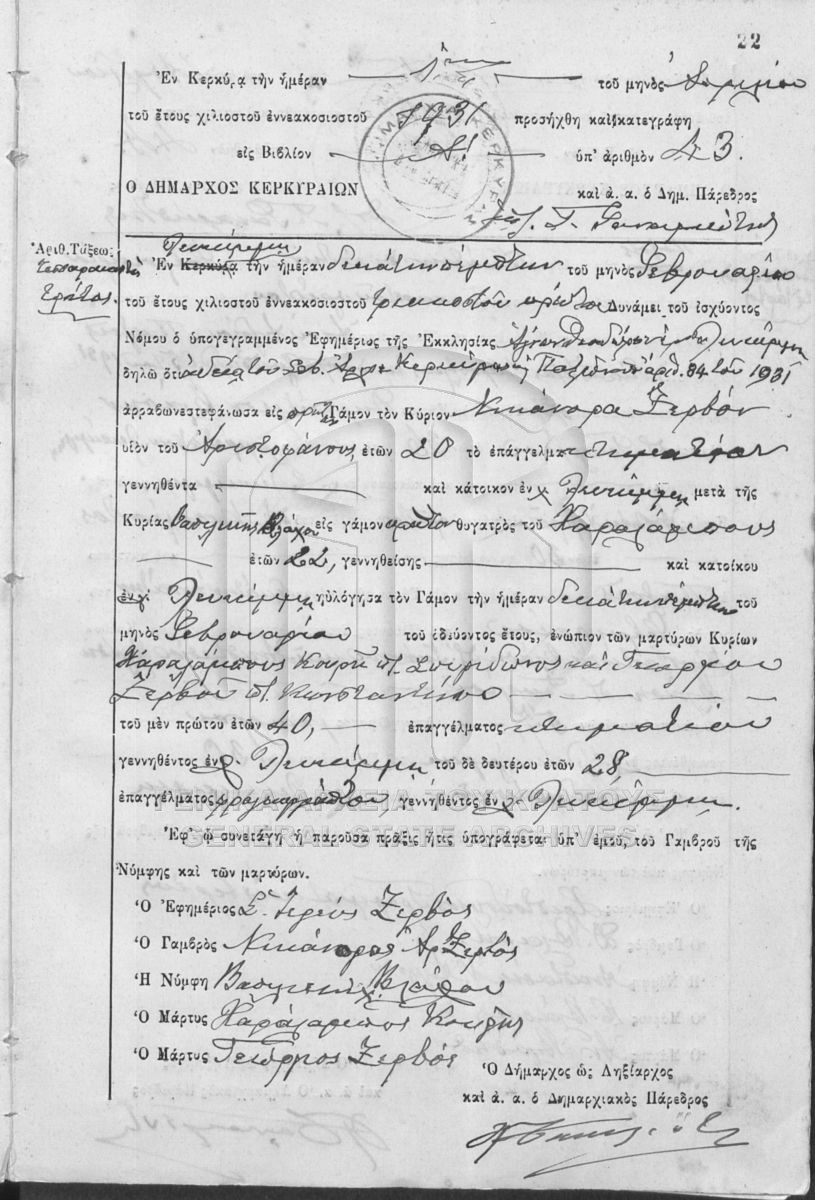 22
Ἐν Κερκύρᾳ τὴν ἡμέραν 1ην τοῦ μηνὸς Ἀπριλίου
τοῦ ἔτους χιλιοστοῦ ἐννεακοσιοστοῦ 1931 προσήχθη καὶ κατεγράφη
εἰς Βιβλίον Α! ὑπ' ἀριθμὸν 43.
Ο ΔΗΜΑΡΧΟΣ ΚΕΡΚΥΡΑΙΩΝ καὶ ἀ. α. ὁ Δημ. Πάρεδρος
Ἀριθ. Τάξεως
Τεσσαρακοστὴ
Τρίτος.
Λευκίμμῃ
Ἐν Κερκύρᾳ τὴν ἡμέραν δεκάτην πέμπτην τοῦ μηνὸς Φεβρουαρίου
τοῦ ἔτους χιλιοστοῦ ἐννεακοσιοστοῦ τριακοστοῦ πρώτου Δυνάμει τοῦ ἰσχύοντος
Νόμου ὁ ὑπογεγραμμένος Ἐφημέριος τῆς Ἐκκλησίας Ἁγίων Θεοδώρων Λευκίμμῃ
δηλῶ ὅτι ἀδείᾳ τοῦ Σεβ. Κερκύρας ἀριθ. 84 τοῦ 1931
ἀρραβωνεστεφάνωσα εἰς Γάμον τὸν Κύριον Νικάνορα Ζερβὸν
υἱὸν τοῦ Ἀριστοφάνους, ἐτῶν 20 τὸ ἐπάγγελμα κτηματίαν
γεννηθέντα καὶ κάτοικον ἐν Λευκίμμῃ μετὰ τῆς
Κυρίας Βασιλικῆς Βλάχου εἰς γάμον πρῶτον θυγατρὸς τοῦ Χαραλάμπους
ἐτῶν 22, γεννηθείσης καὶ κατοίκου
ἐν Λευκίμμῃ ηὐλόγησα τὸν Γάμον τὴν ἡμέραν δεκάτην πέμπτην τοῦ
μηνὸς Φεβρουαρίου τοῦ ὁδεύοντος ἔτους, ἐνώπιον τῶν μαρτύρων Κυρίων
Χαραλάμπους Κουρῆ Σπυρίδωνος καὶ Γεωργίου
Ζερβοῦ Κωνσταντίνου
τοῦ μὲν πρώτου ἐτῶν 40, ἐπαγγέλματος κτηματίου
γεννηθέντος ἐν Λευκίμμῃ τοῦ δὲ δευτέρου ἐτῶν 28
ἐπαγγέλματος γεννηθέντος ἐν Λευκίμμῃ.
ΓΕΝΙΚΑ ΑΡΧΕΙΑ ΤΟΥ ΚΡΑΤΟΥΣ
GENERAL STATE ARCHIVES
Ἐφ' ᾧ συνετάγη ἡ παροῦσα πρᾶξις ἥτις ὑπογράφεται ὑπ' ἐμοῦ, τοῦ Γαμβροῦ τῆς
Νύμφης καὶ τῶν μαρτύρων.
Ὁ Ἐφημέριος Σ. Ἱερεὺς Ζερβὸς
Ὁ Γαμβρὸς Νικάνορας Ἀρ Ζερβὸς
Ἡ Νύμφη Βασιλικὴ Βλάχου
Ὁ Μάρτυς Χαράλαμπος Κουρῆς
Ὁ Μάρτυς Γεώργιος Ζερβὸς
Ὁ Δήμαρχος ὡς Ληξίαρχος
καὶ ἀ. α. ὁ Δημαρχιακὸς Πάρεδρος